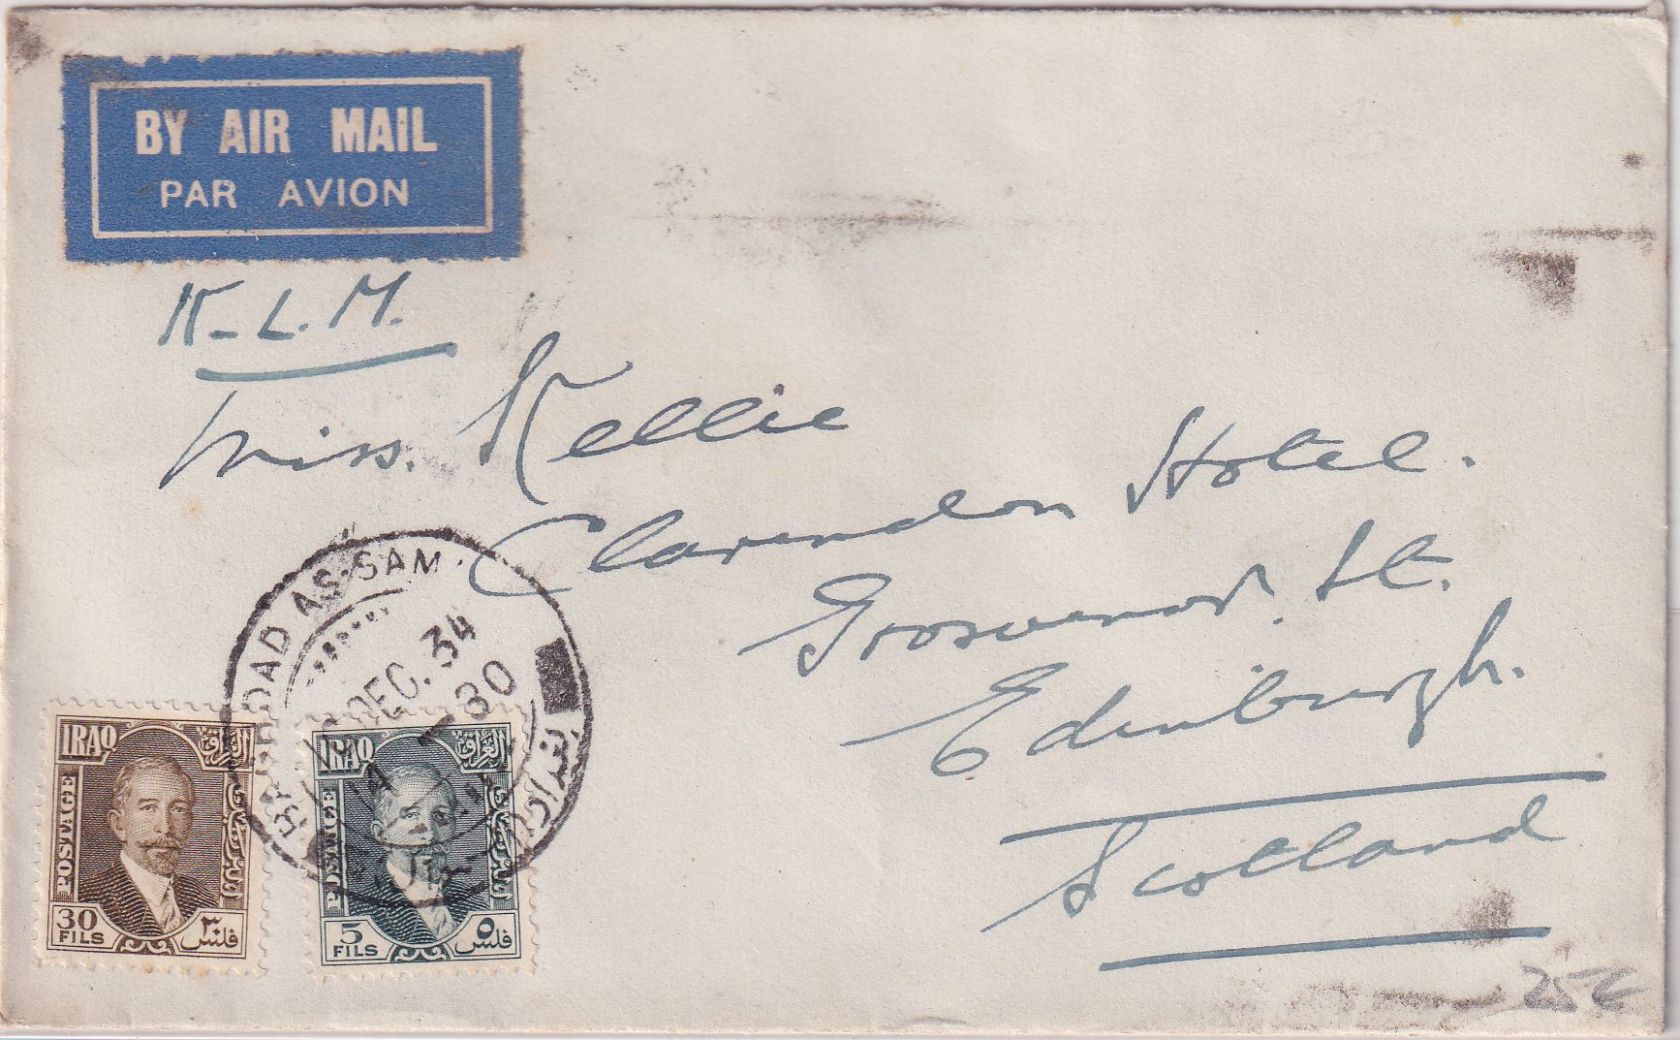 BY AIR MAIL
PAR AVION
K-L.M.
Miss. Kellie
Clarendon Hotel.
Grosvenor. St.
Edinburgh.
Scotland
BAGHDAD AS-SAM
DEC. 34
30
IRAQ العراق
POSTAGE
30 ٣٠
FILS فلس
IRAQ العراق
POSTAGE
5 ٥
FILS فلس
25€